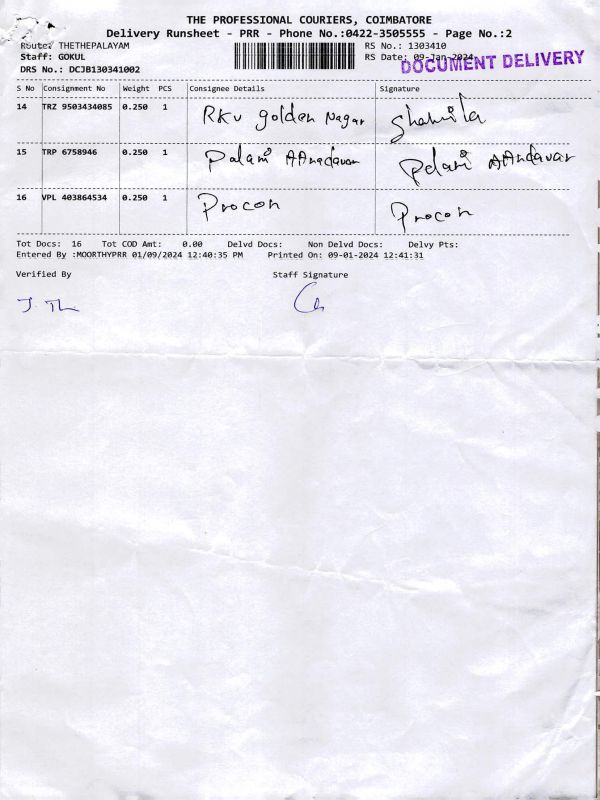 THE PROFESSIONAL COURIERS, COIMBATORE
Delivery Runsheet - PRR - Phone No.:0422-3505555 - Page No.:2
Route: THETHEPALAYAM RS No.: 1303410
Staff: GOKUL RS Date: 09-Jan-2024
DOCUMENT DELIVERY
DRS No.: DCJB130341002
S No Consignment No Weight PCS Consignee Details Signature
14 TRZ 9503434085 0.250 1 RKV golden Nagar Shamila
15 TRP 6758946 0.250 1 Palani AAndavar Palani AAndavar
16 VPL 403864534 0.250 1 Procon Procon
Tot Docs: 16 Tot COD Amt: 0.00 Delvd Docs: Non Delvd Docs: Delvy Pts:
Entered By :MOORTHYPRR 01/09/2024 12:40:35 PM Printed On: 09-01-2024 12:41:31
Verified By Staff Signature